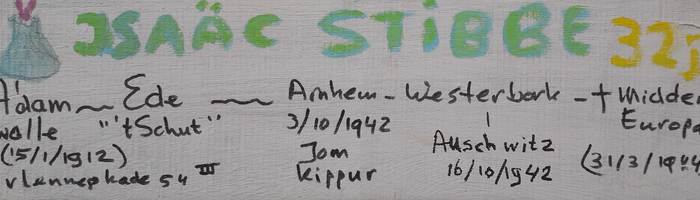 ISAÄC STIBBE 32j
A'dam ~ Ede ~ Arnhem - Westerbork - † Midde
walle "'t Schut" 3/10/1942 | Europa
(15/1/1912) Jom Auschwitz (31/3/1944
kade 54 III Kippur 16/10/1942